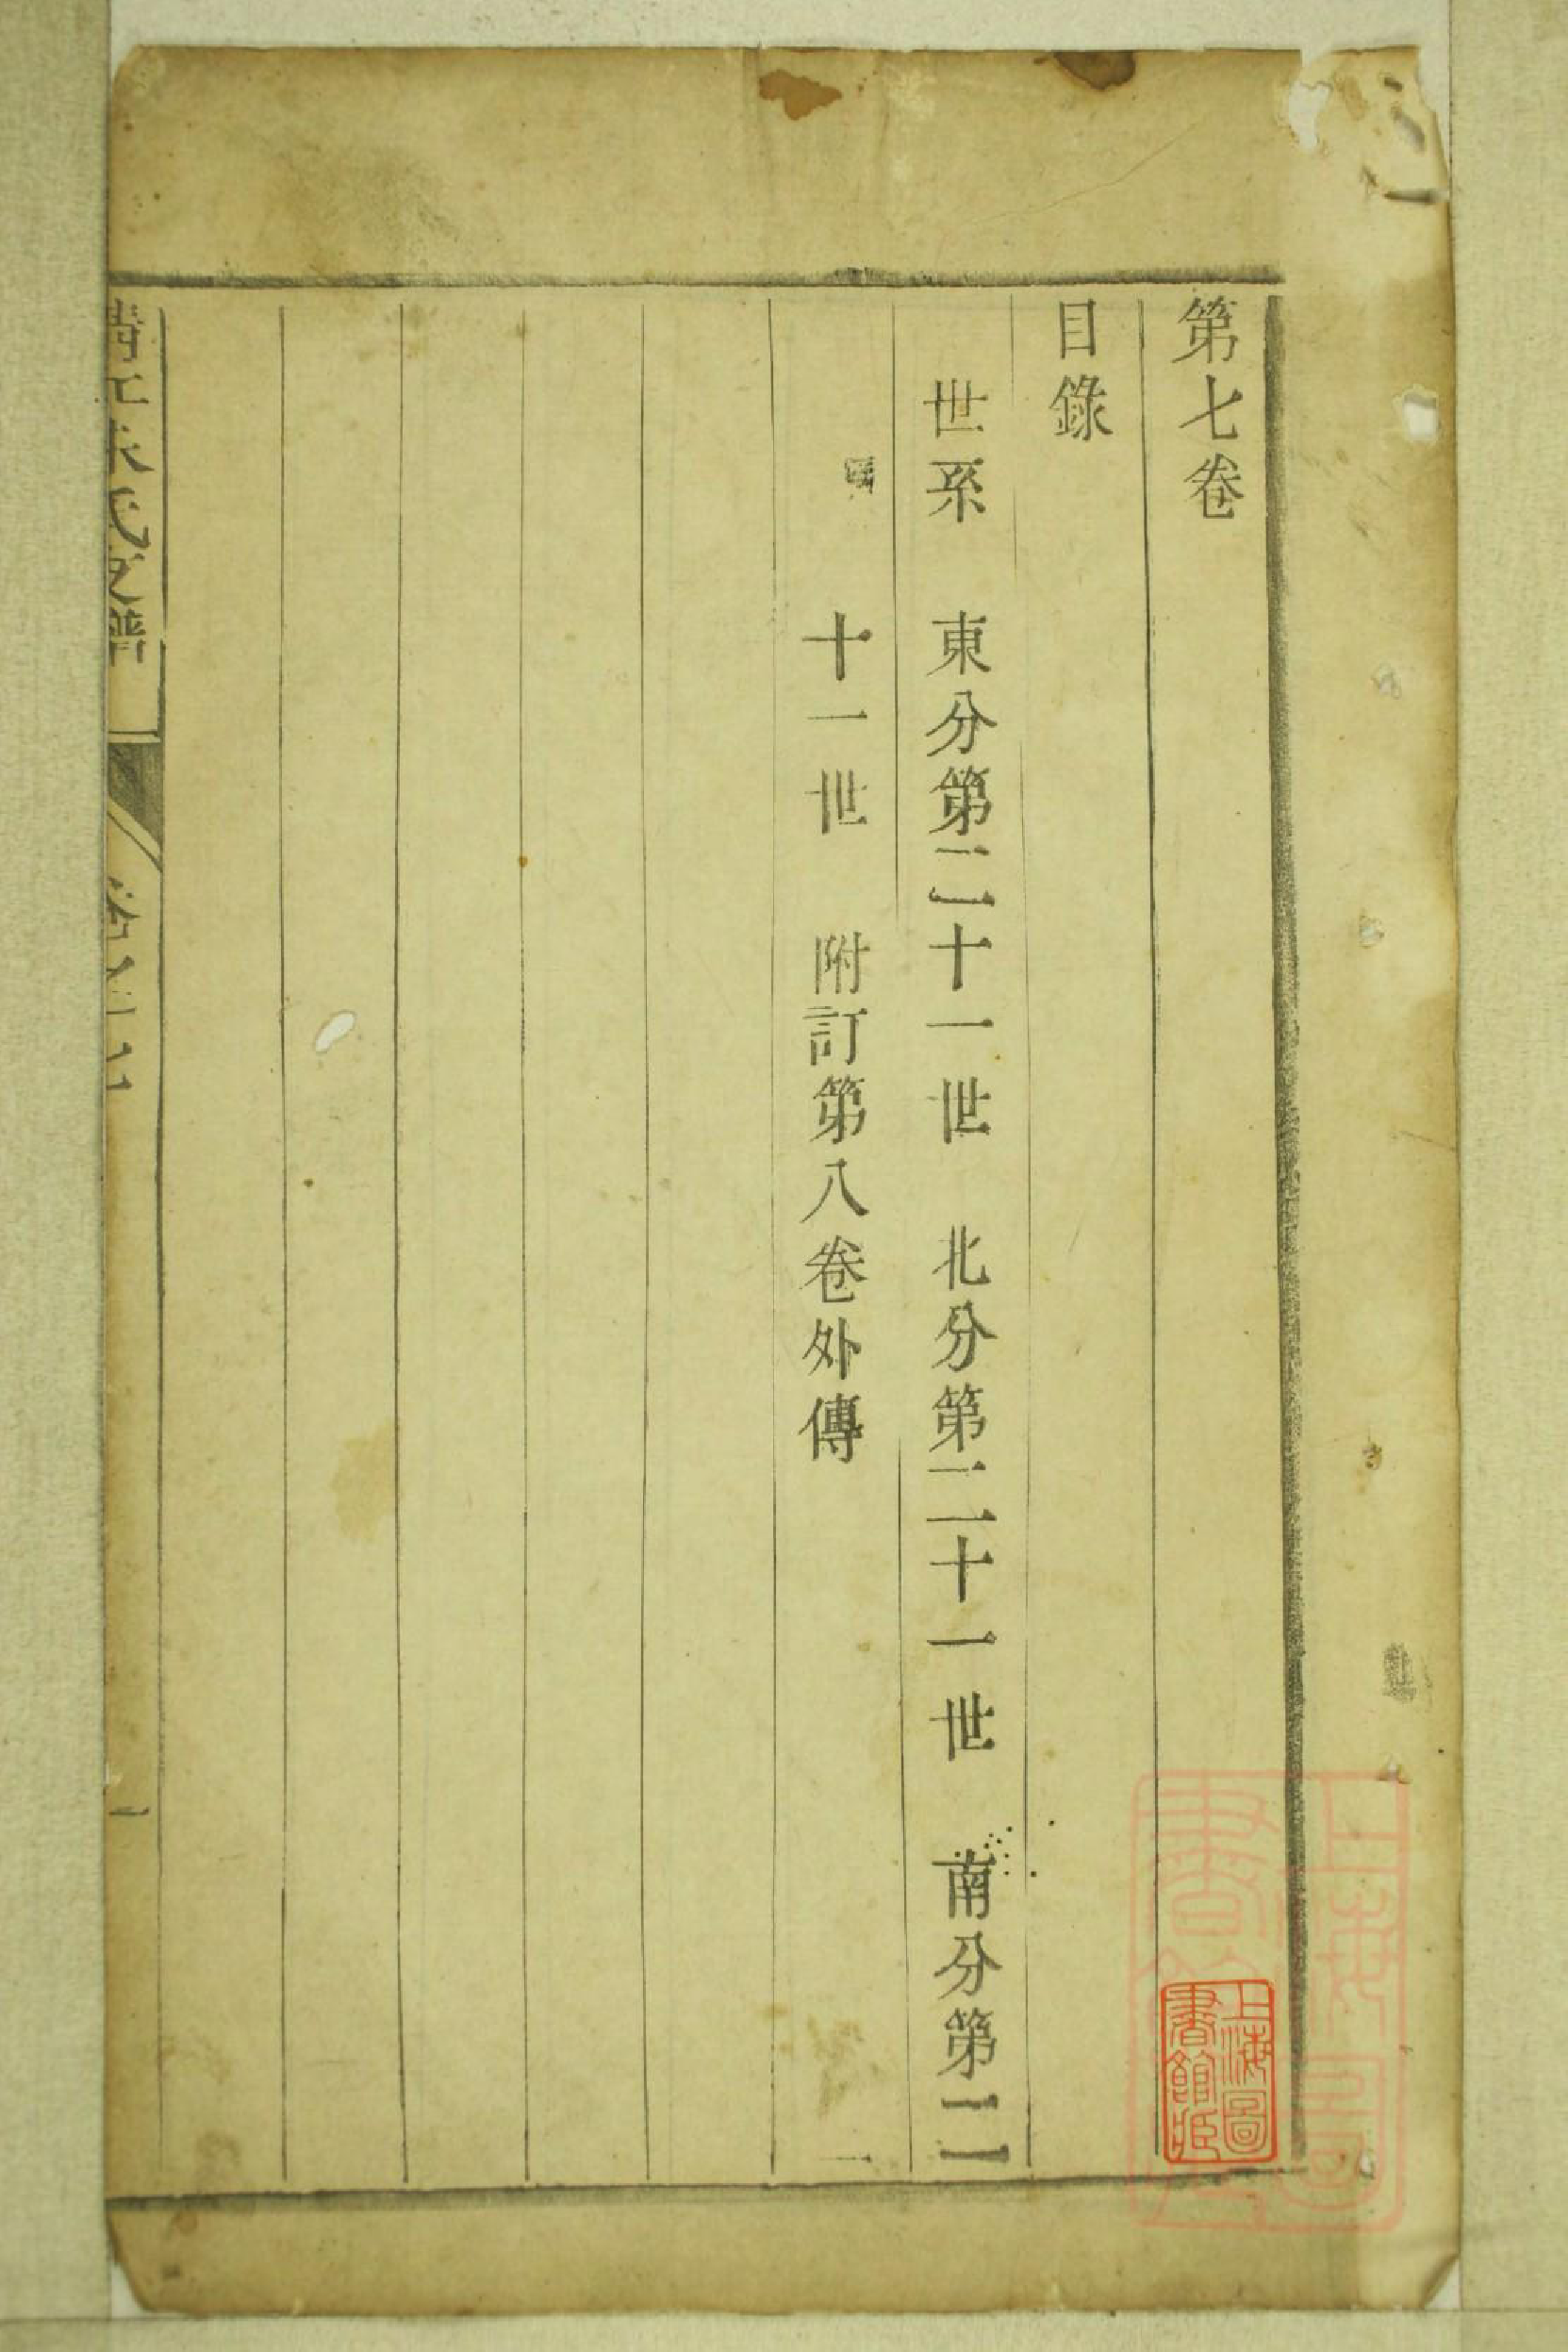 第七卷
目錄
世系　東分第二十一世　北分第二十一世　南分第二
十一世　附訂第八卷外傳
氏支譜
一
上海圖
書館藏